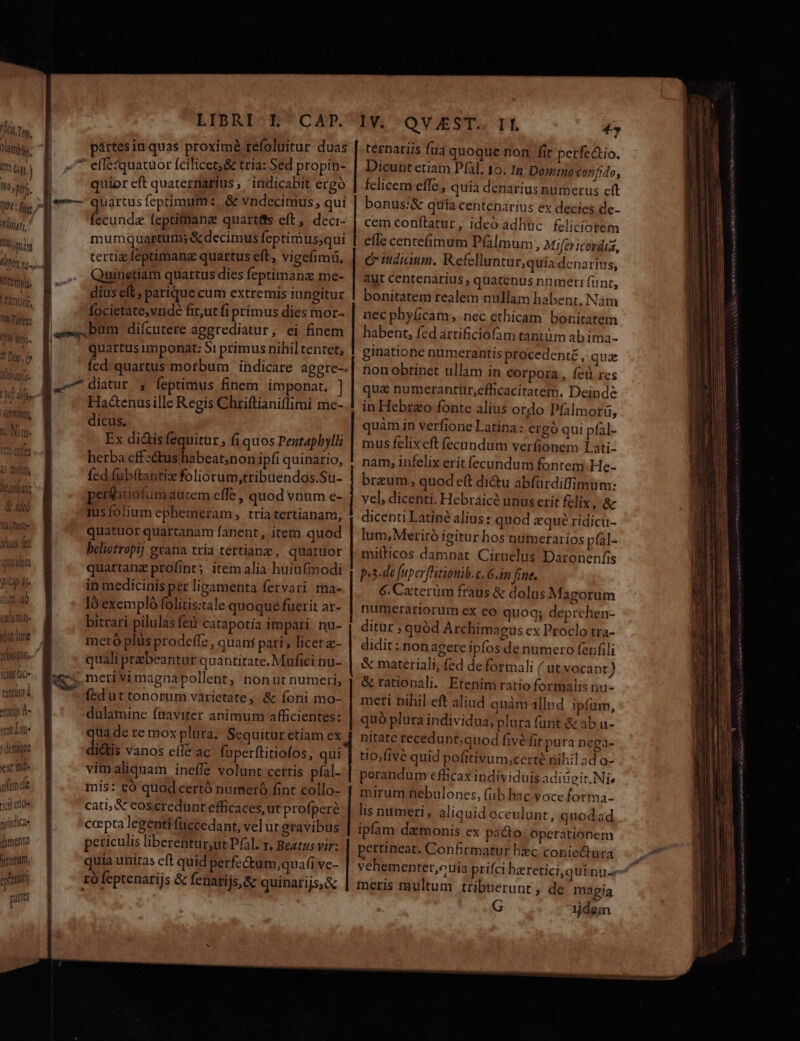 LIBRI I. CAP. IV. QVÆST. II. 47
partes in quas proximè resoluitur duas
esse: quatuor scilicet, & tria: Sed propin-
quior est quaternarius, indicabit ergò
quartus septimum: & vndecimus, qui
secundæ septimanæ quartus est, deci-
mumquartum; & decimus septimus, qui
tertiæ septimanæ quartus est, vigesimũ,
Quinetiam quartus dies septimanæ me-
dius est, parique cum extremis iungitur
societate, vndè fit, ut si primus dies mor-
bum discutere aggrediatur, ei finem
quartus imponat: Si primus nihil tentet,
sed quartus morbum indicare aggre-
diatur, septimus finem imponat. ]
Hactenus ille Regis Christianissimi me-
dicus.
Ex dictis sequitur, si quos Pentaphylli
herba effectus habeat, non ipsi quinario,
sed substantiæ foliorum, tribuendos. Su-
perstitiosum autem esse, quod vnum e-
ius folium ephemeram, tria tertianam,
quatuor quartanam sanent, item quod
heliotropij grana tria tertianæ, quatuor
quartanæ prosint; item alia huiusmodi
in medicinis per ligamenta servari ma-
lò exemplò solitis: tale quoque fuerit ar-
bitrari pilulas seù catapotia impari nu-
merò plùs prodesse, quàm pari, licet æ-
quali præbeantur quantitate. Musici nu-
meri vi magna pollent, non ut numeri,
sed ut tonorum varietate, & soni mo-
dulamine suaviter animum afficientes:
qua de re mox plura. Sequitur etiam ex
dictis vanos esse ac superstitiosos, qui
vim aliquam inesse volunt certis psal-
mis: eò quod certò numerò sint collo-
cati, & eos credunt efficaces, ut prosperè
cœpta legenti succedant, vel ut gravibus
periculis liberentur, ut Psal. 1. Beatus vir:
quia unitas est quid perfectum, quasi ve-
rò septenarijs & senarijs, & quinarijs, &
ternariis sua quoque non sit perfectio.
Dicunt etiam Psal. 10. In Domino confido,
felicem esse, quia denarius numerus est
bonus: & quia centenarius ex decies de-
cem constatur, ideò adhùc feliciorem
esse centesimum Psalmum, Misericordiā,
& iudicium. Refelluntur, quia denarius,
aut centenarius, quatenus numeri sunt,
bonitatem realem nullam habent, Nam
nec physicam, nec ethicam bonitatem
habent, sed artificiosam tantùm ab ima-
ginatione numerantis procedentẽ, quæ
non obtinet ullam in corpora, seù res
quæ numerantur, efficacitatem. Deindè
in Hebræo fonte alius ordo Psalmorũ,
quàm in versione Latina: ergò qui psal-
mus felix est secundum versionem Lati-
nam, infelix erit secundum fontem He-
bræum, quod est dictu absurdissimum:
vel, dicenti Hebraicè unus erit felix, &
dicenti Latinè alius: quod æquè ridicu-
lum, Meritò igitur hos numerarios psal-
misticos damnat Ciruelus Daronensis
p. 3. de superstitionib. c. 6. in fine.
6. Cæterùm fraus & dolus Magorum
numerariorum ex eo quoq; deprehen-
ditur, quòd Archimagus ex Proclo tra-
didit: non agere ipsos de numero sensili
& materiali, sed de formali ( ut vocant)
& rationali. Etenim ratio formalis nu-
meri nihil est aliud quàm illud ipsum,
quò plura individua, plura sunt & ab u-
nitate recedunt, quod sivè sit pura nega-
tio, sivè quid positivum, certè nihil ad o-
perandum efficax individuis adiũgit. Ni-
mirum nebulones, sub hac voce forma-
lis numeri, aliquid occulunt, quod ad
ipsam dæmonis ex pacto operationem
pertineat. Confirmatur hæc coniectura
vehementer, quia prisci hæretici, qui nu-
meris multum tribuerunt, de magia
G ijdem